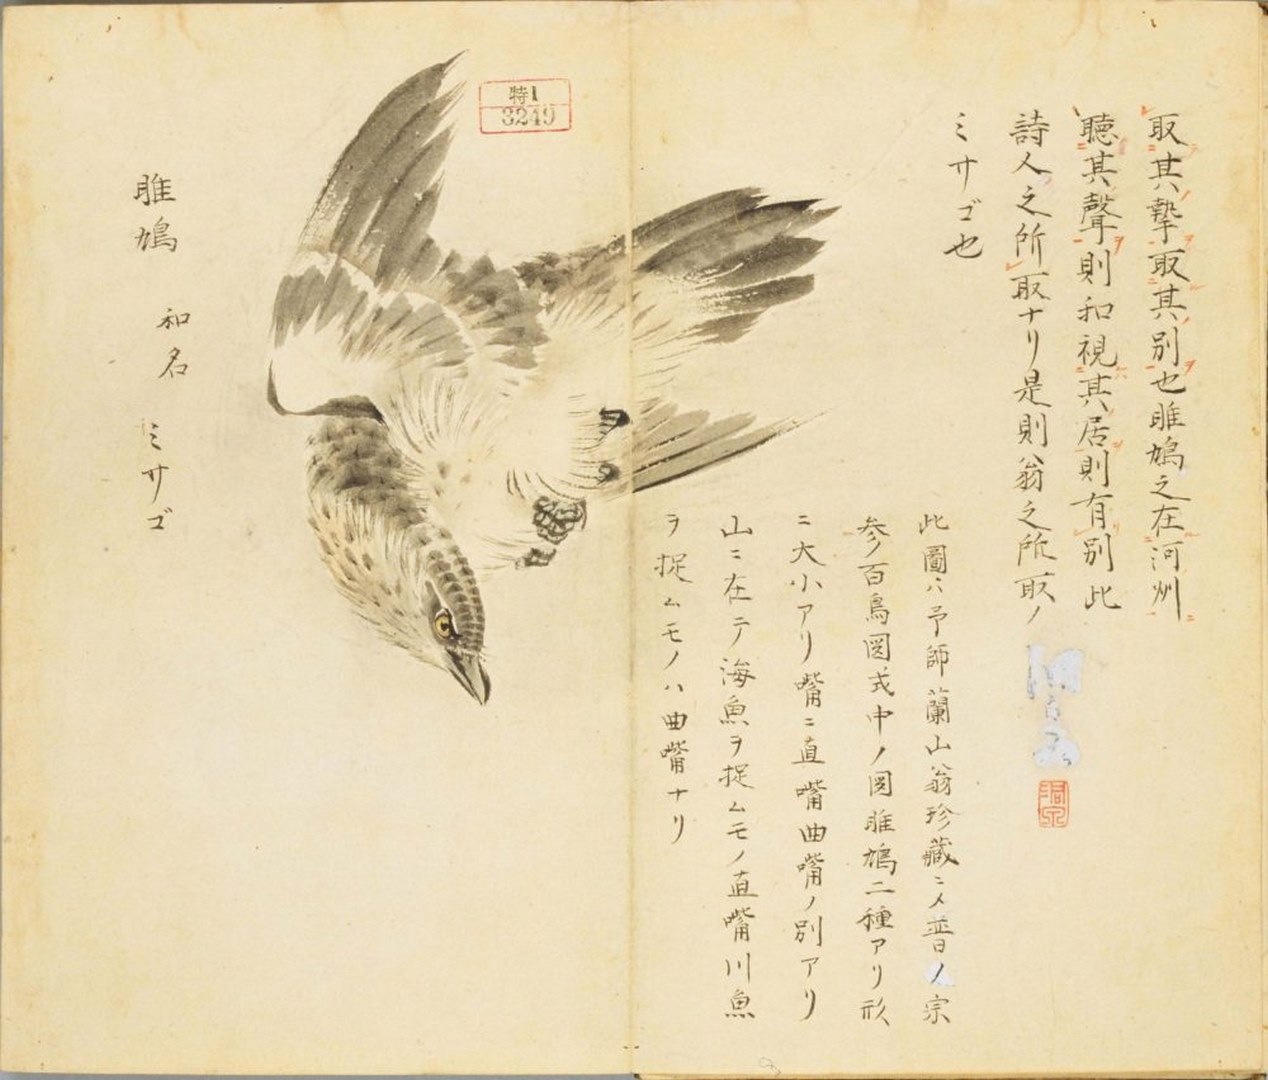 取其摯取其別也雎鳩之在河州
聴其聲則和視其居則有別此
詩人之所取ナリ是則翁之所取ノ
ミサゴ也
此圖ハ予師蘭山翁珍藏ニメ晋ノ宗
参百鳥図式中ノ図雎鳩二種アリ形
ニ大小アリ嘴ニ直嘴曲嘴ノ別アリ
山ニ在テ海魚ヲ捉ムモノ直嘴川魚
ヲ捉ムモノハ曲嘴ナリ
特1
3249
雎鳩
和名
ミサゴ